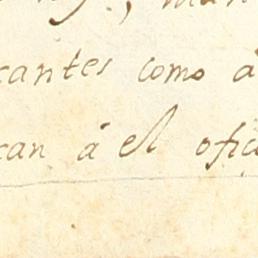 cantes como á
can á el ofic